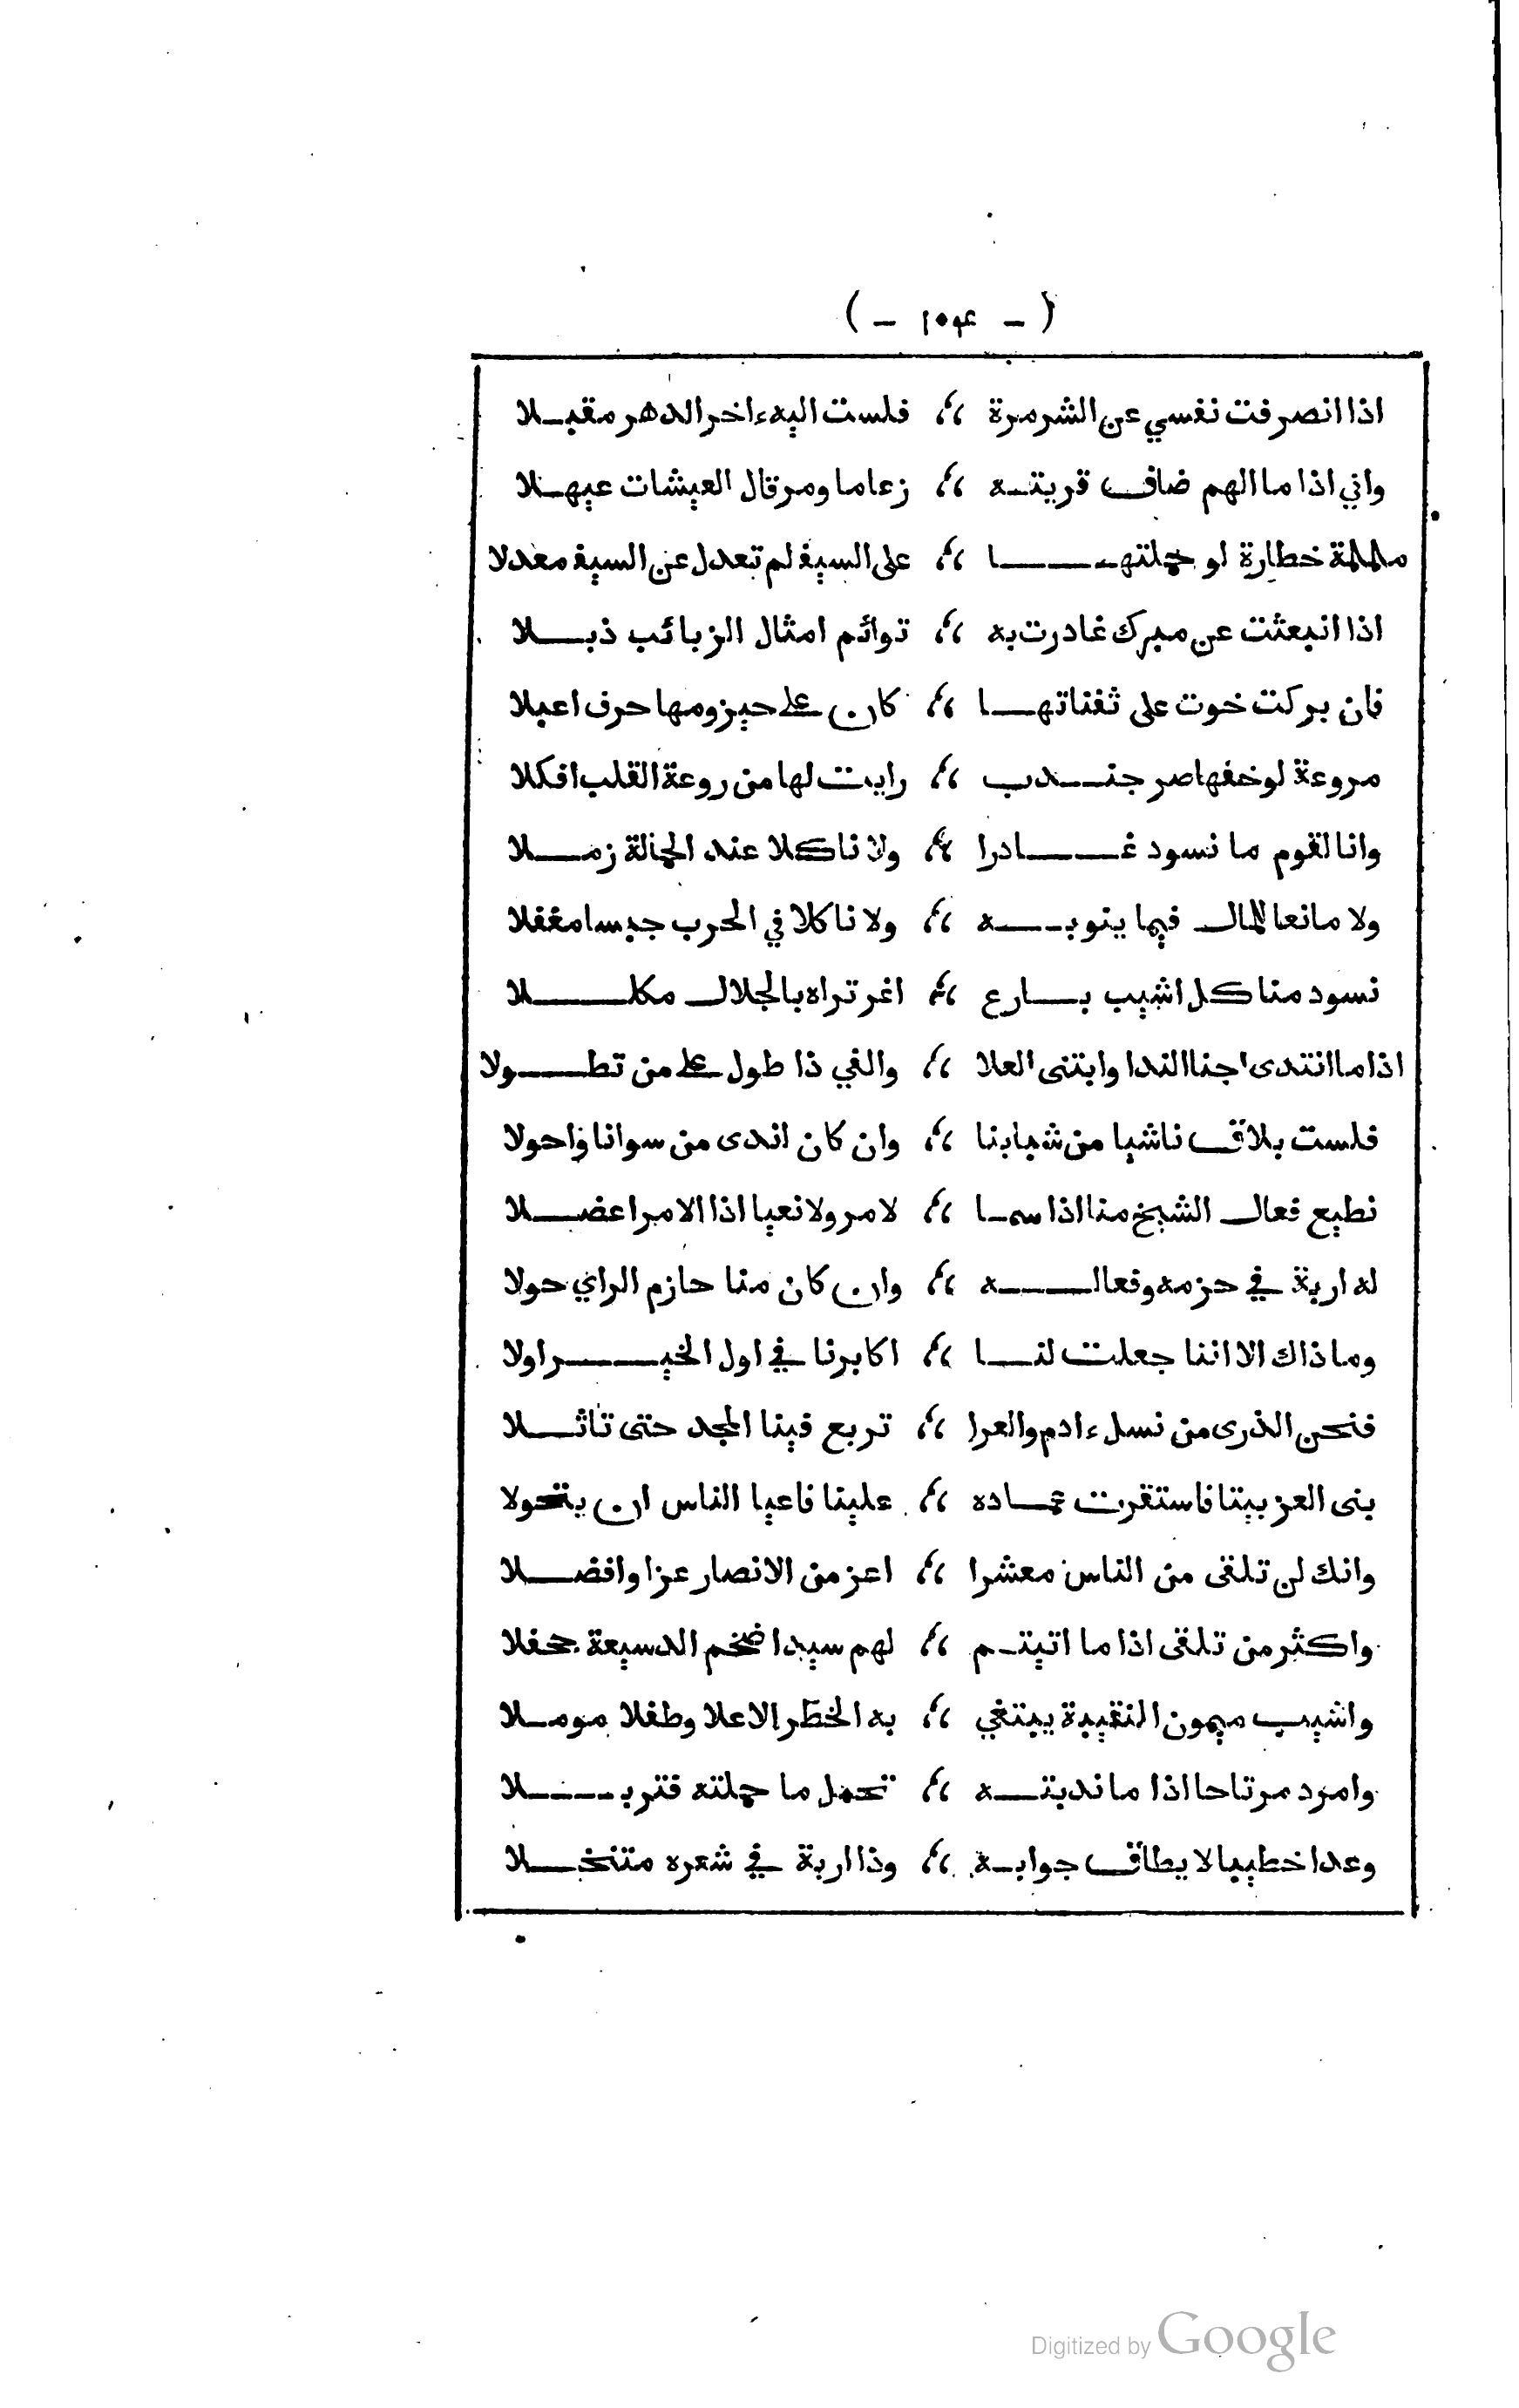 ( - ١٠٤ - )
اذا انصرفت نفسي عن الشر مرة ،، فلست اليه ءاخر الدهر مقبلا
واني اذا ما الهم ضاف قريته ،، زعاما ومرقال العيشات عيهلا
ململمة خطارة لو حملتها ،، على السيف لم تعدل عن السيف معدلا
اذا انبعثت عن مبرك غادرت به ،، توائم امثال الزبائب ذبلا
فان بركت خوت على ثفناتها ،، كان على حيزومها حرف اعبلا
مروعة لو خفها صر جندب ،، رايت لها من روعة القلب افكلا
وانا لقوم ما نسود غادرا ،، ولا ناكلا عند الحمالة زملا
ولا مانعا للمال فيما ينوبه ،، ولا ناكلا في الحرب جبسا مغفلا
نسود منا كل اشيب بارع ،، اغر تراه بالجلال مكللا
اذا ما انتدى اجنا الندا وابتنى العلا ،، والفي ذا طول على من تطولا
فلست بلاق ناشيا من شبابنا ،، وان كان اندى من سوانا واحولا
نطيع فعال الشيخ منا اذا سما ،، لامر ولا نعيا اذا الامر اعضلا
له اربة في حزمه وفعاله ،، وان كان منا حازم الراي حولا
وما ذاك الا اننا جعلت لنا ،، اكابرنا في اول الخير اولا
فنحن الذرى من نسل ءادم والعرا ،، تربع فينا المجد حتى تاثلا
بنى العز بيتا فاستقرت عماده ،، علينا فاعيا الناس ان يتحولا
وانك لن تلقى من الناس معشرا ،، اعز من الانصار عزا وافضلا
واكثر من تلقى اذا ما اتيتم ،، لهم سيدا ضخم الدسيعة جحفلا
واشيب ميمون النقيبة يبتغي ،، به الخطر الاعلا وطفلا مومـلا
وامرد مرتاحا اذا ما ندبته ،، تحمل ما حملته فتربلا
وعدا خطيبا لا يطاق جوابه ،، وذا اربة في شعره متنخلا
Digitized by Google